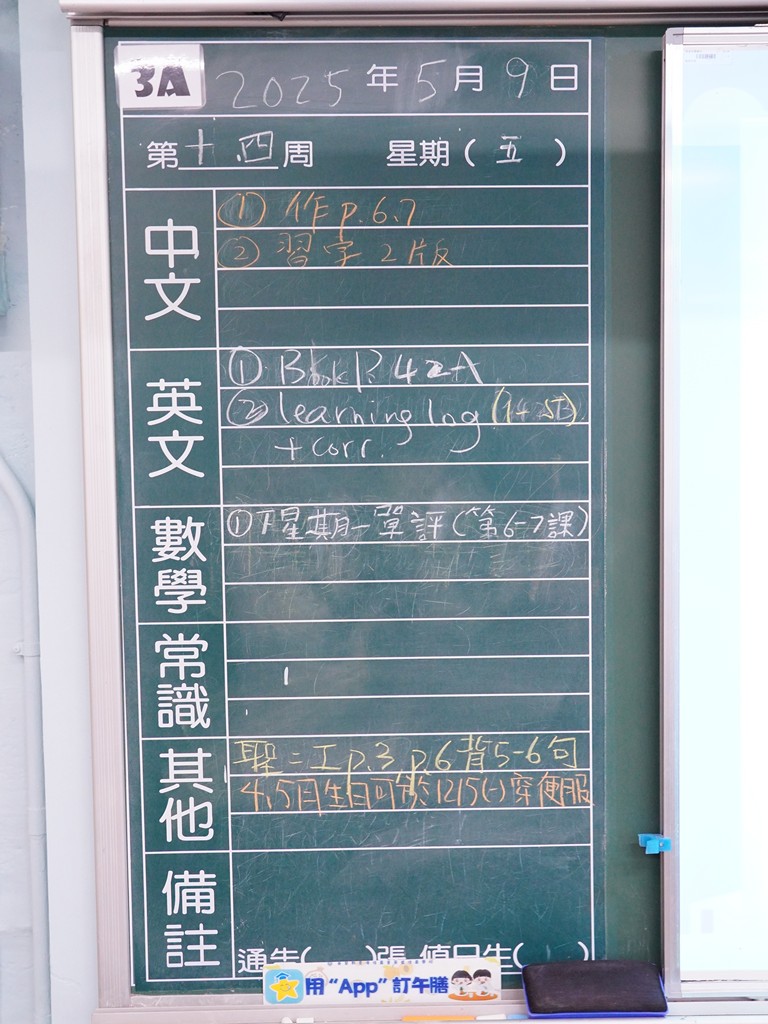 3A 2025年5月9日
第十四周 星期(五)
中文
① 作 p.6.7
② 習字 2版
英文
① Book P. 42A
② learning log
+ corr.
數學
① 下星期一單評(第6-7課)
常識
其他
聖二工p.3 p.6背5-6句
4,5月生日可於12/5(一)穿便服
備註
通告( )張 值日生( )
用“App”訂午膳